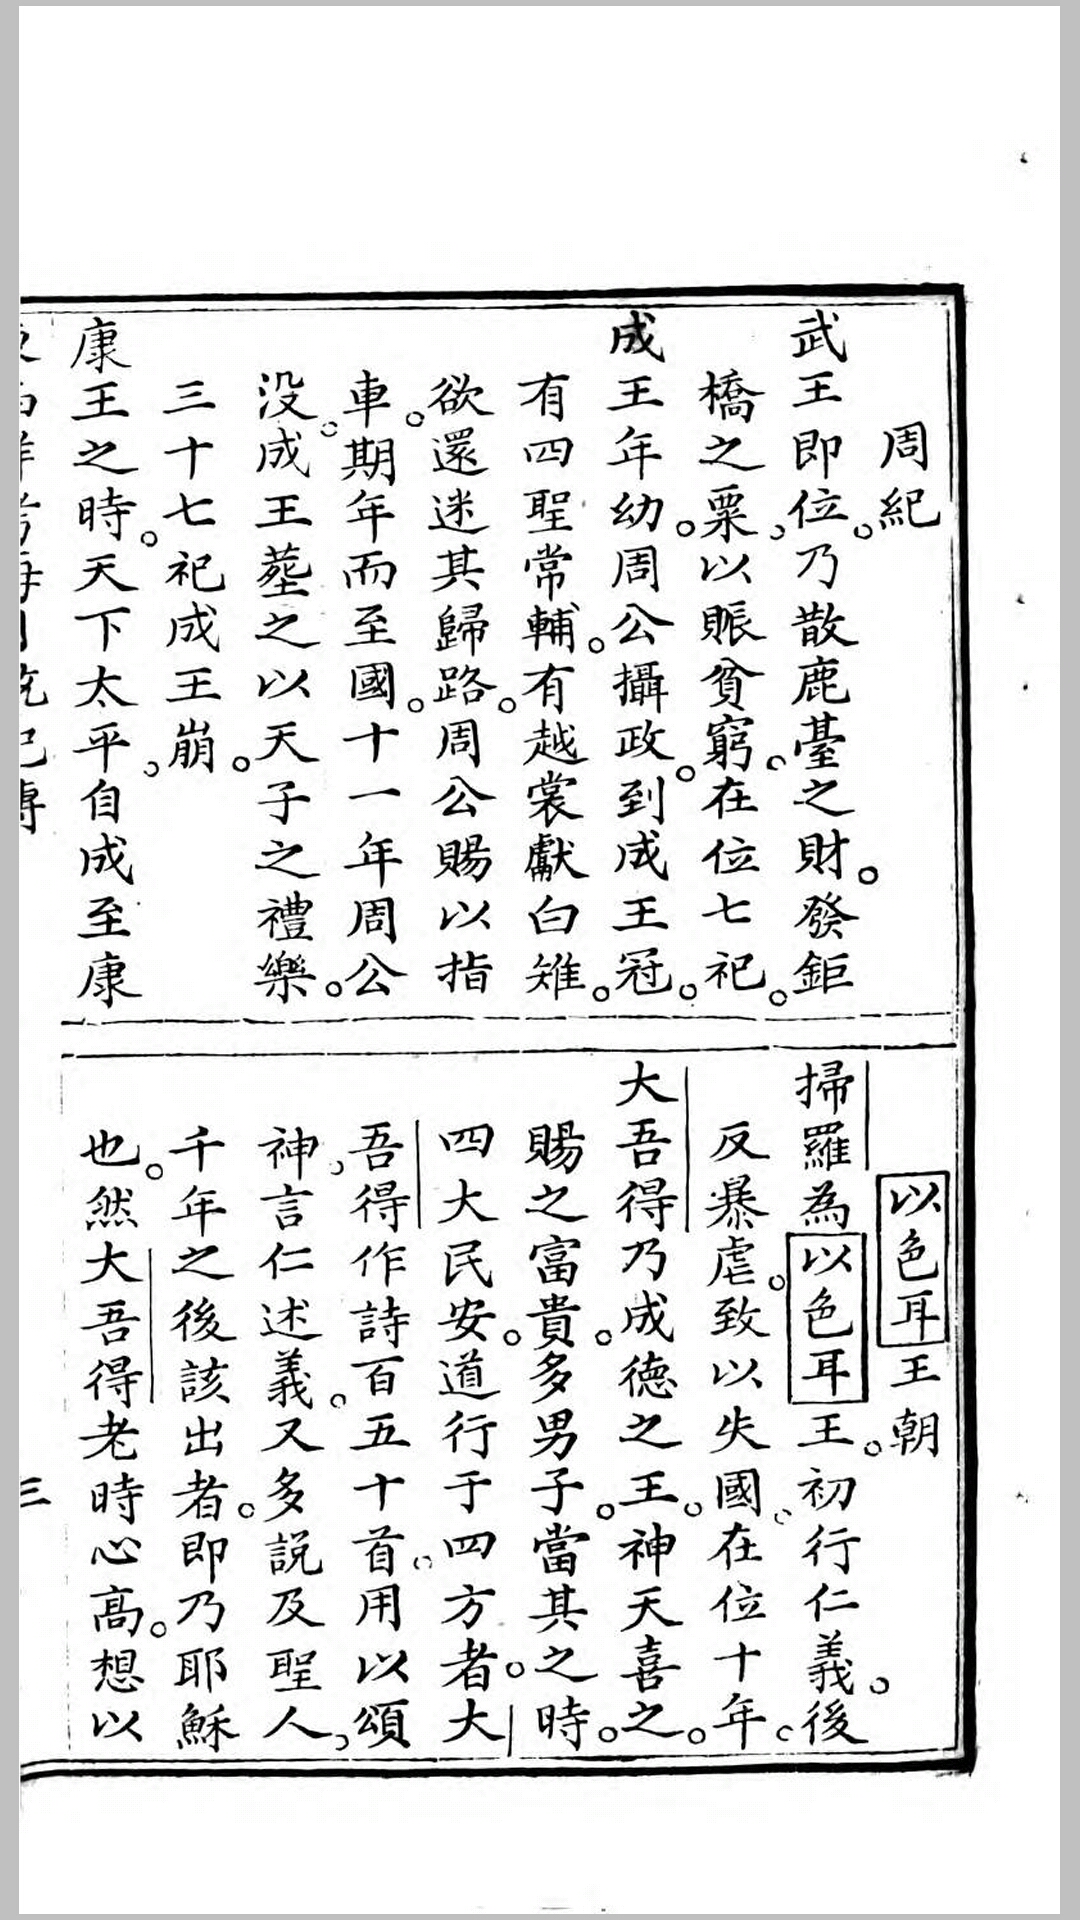 周紀
武王即位。乃散鹿臺之財。發鉅
橋之粟、以賑貧窮。在位七祀。
成王年幼。周公攝政。到成王冠。
有四聖常輔。有越裳獻白雉。
欲還迷其歸路。周公賜以指
車。期年而至國。十一年周公
没。成王塟之以天子之禮樂。
三十七祀成王崩。
康王之時。天下太平。自成至康
以色耳王朝
掃羅為以色耳王。初行仁義。後
反暴虐。致以失國。在位十年。
大吾得乃成德之王。神天喜之。
賜之富貴。多男子。當其之時。
四大民安。道行于四方者。大
吾得作詩百五十首。用以頌
神、言仁述義。又多説及聖人、
千年之後該出者。即乃耶穌
也。然大吾得老時心高。想以
三